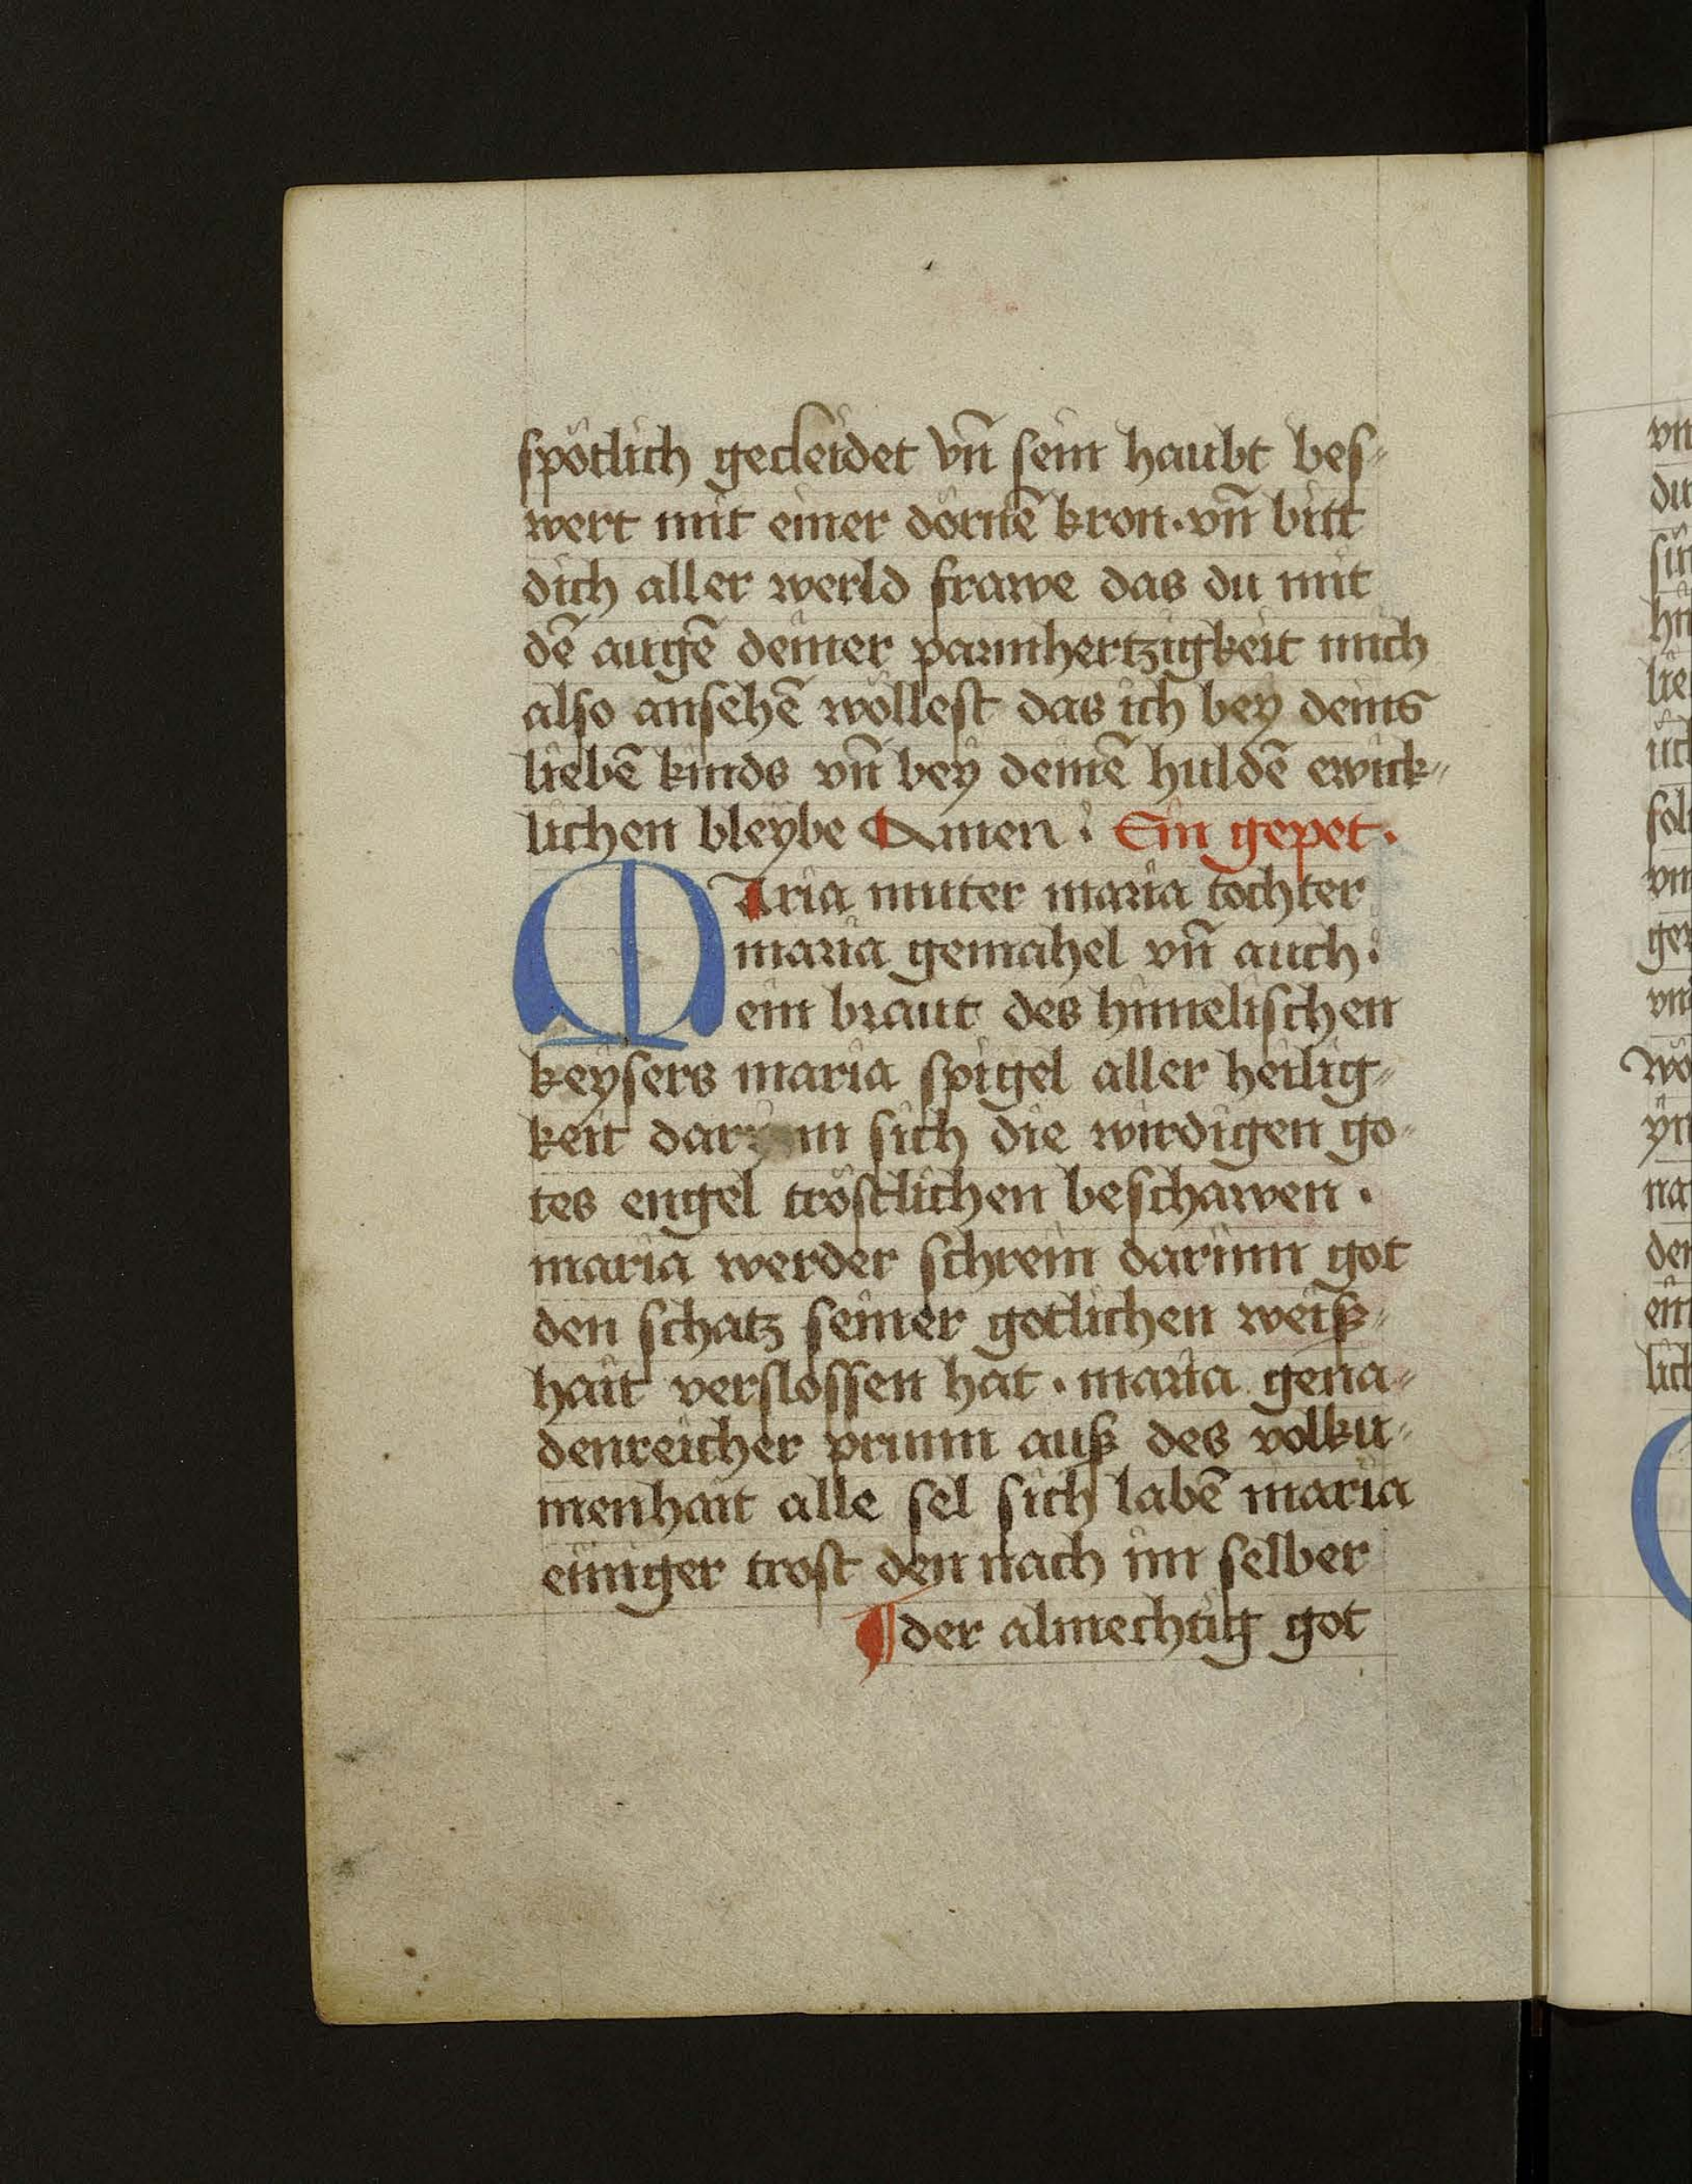 spötlich gecleidet vn̄ sein haubt bes⸗
wert mit einer dörnē kron · vn̄ bitt
dich aller werld frawe das du mit
dē augē deiner parmhertzigkeit mich
also ansehē wöllest das ich bey deins
liebē kinds vn̄ bey deinē huldē ewick⸗
lichen bleybe Amen : Ein gepet ·
Maria muter maria tochter
maria gemahel vn̄ auch :
ein braut des himelischen
keysers maria spigel aller heilig⸗
keit sich die wirdigen go⸗
tes engel tröstlichen beschawen ·
maria werder schrein darinn got
den schatz seiner gotlichen weiß⸗
hait verslossen hat · maria gena⸗
denreicher prunn auß des volku⸗
menhait alle sel sich labē maria
einiger trost den nach im selber
¶ der almechtig got